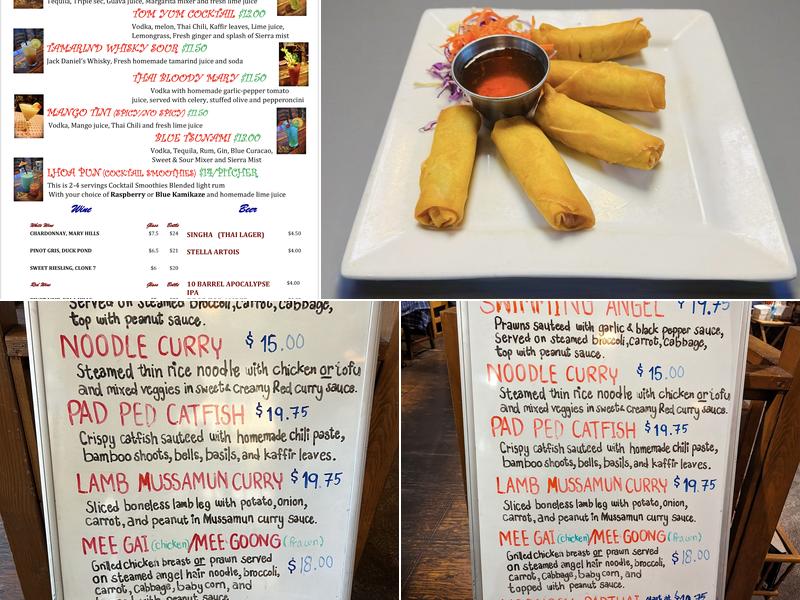 Tequila, Triple sec, Guava juice, Margarita mix and fresh lime juice
TOM YUM COCKTAIL $12.00
Vodka, melon, Thai Chili, Kaffir leaves, Lime juice,
Lemongrass, Fresh ginger and splash of Sierra mist
TAMARIND WHISKY SOUR $11.50
Jack Daniel's Whisky, Fresh homemade tamarind juice and soda
THAI BLOODY MARY $11.50
Vodka with homemade garlic-pepper tomato
juice, served with celery, stuffed olive and pepperoncini
MANGO TINI (SPICY/NO SPICY) $11.50
Vodka, Mango juice, Thai Chili and fresh lime juice
BLUE TSUNAMI $13.00
Vodka, Tequila, Rum, Gin, Blue Curacao,
Sweet & Sour Mixer and Sierra Mist
LHOA PUN (COCKTAIL SMOOTHIES) $14/PITCHER
This is 2-4 servings Cocktail Smoothies Blended light rum
With your choice of Raspberry or Blue Kamikaze and homemade lime juice
Wine Beer
White Wine Glass Bottle
CHARDONNAY, MARY HILLS $7.5 $24 SINGHA (THAI LAGER) $4.50
PINOT GRIS, DUCK POND $6.5 $21 STELLA ARTOIS $4.00
SWEET RIESLING, CLONE 7 $6 $20
Red Wine Glass Bottle 10 BARREL APOCALYPSE $4.00
IPA
Served on steamed broccoli, carrot, cabbage,
top with peanut sauce.
NOODLE CURRY $15.00
Steamed thin rice noodle with chicken or tofu
and mixed veggies in sweet & Creamy Red curry sauce.
PAD PED CATFISH $19.75
Crispy catfish sauteed with homemade chili paste,
bamboo shoots, bells, basils, and kaffir leaves.
LAMB MUSSAMUN CURRY $19.75
Sliced boneless lamb leg with potato, onion,
carrot, and peanut in Mussamun curry sauce.
MEE GAI (chicken)/MEE GOONG (Prawn)
Grilled chicken breast or prawn served $18.00
on steamed angel hair noodle, broccoli,
carrot, cabbage, baby corn, and
topped with peanut sauce
SWIMMING ANGEL $19.75
Prawns sauteed with garlic & black pepper sauce,
Served on steamed broccoli, carrot, cabbage,
top with peanut sauce.
NOODLE CURRY $15.00
Steamed thin rice noodle with chicken or tofu
and mixed veggies in sweet & Creamy Red curry sauce.
PAD PED CATFISH $19.75
Crispy catfish sauteed with homemade chili paste,
bamboo shoots, bells, basils, and kaffir leaves.
LAMB MUSSAMUN CURRY $19.75
Sliced boneless lamb leg with potato, onion,
carrot, and peanut in Mussamun curry sauce.
MEE GAI (chicken)/MEE GOONG (Prawn)
Grilled chicken breast or prawn served $18.00
on steamed angel hair noodle, broccoli,
carrot, cabbage, baby corn, and
topped with peanut sauce.